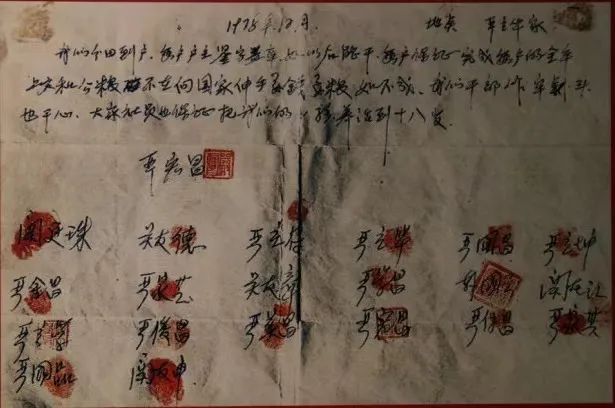 1978年12月. 地点 严立华家
我们分田到户，每户户主签字盖章，如以后能干，每户保证完成每户的全年
上交和公粮 不在向国家伸手要钱要粮 如不成，我们干部作牢刹头
也干心，大家社员也保证把我们的小孩养活到十八岁。
严宏昌
关廷珠 关友德 严立符 严立华 严国昌 严立坤
严金昌 严家芝 关友章 严学昌 韩国云 关友江
严立学 严俊昌 严美昌 严宏昌 严付昌 严家其
严国品 关友申